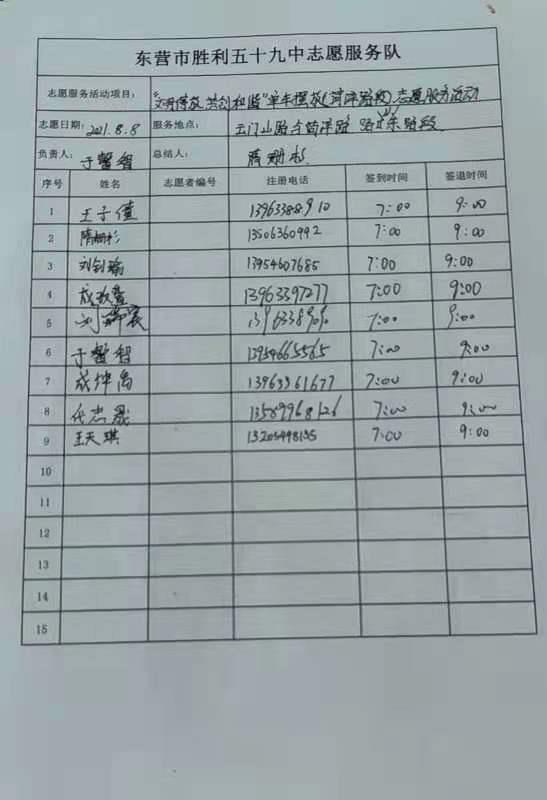 东营市胜利五十九中志愿服务队
志愿服务活动项目： "文明停放 共创和谐"单车摆放(菏泽路段)志愿服务活动
志愿日期: 2021.8.8 服务地点: 玉门山路与菏泽路 路东路段
负责人: 于智 总结人: 隋珊杉
序号 姓名 志愿者编号 注册电话 签到时间 签退时间
1 王子值 13963388910 7:00 9:00
2 隋珊杉 13506360992 7:00 9:00
3 刘钊瑜 13954607685 7:00 9:00
4 成 13963397277 7:00 9:00
5 刘宸 7:00 9:00
6 于智 13954665565 7:00 9:00
7 成坤禹 13963361677 7:00 9:00
8 任志晟 13589968126 7:00 9:00
9 王天琪 7:00 9:00
10
11
12
13
14
15